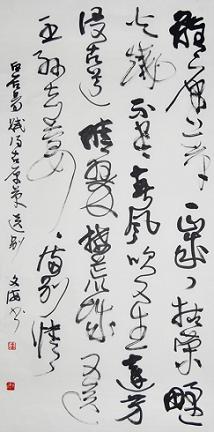 離々原上草一歲一枯榮野
火燒不盡春風吹又生遠芳
侵古道晴翠接荒城又送
王孫去萋々滿別情
白居易賦得古原草送別 文海书